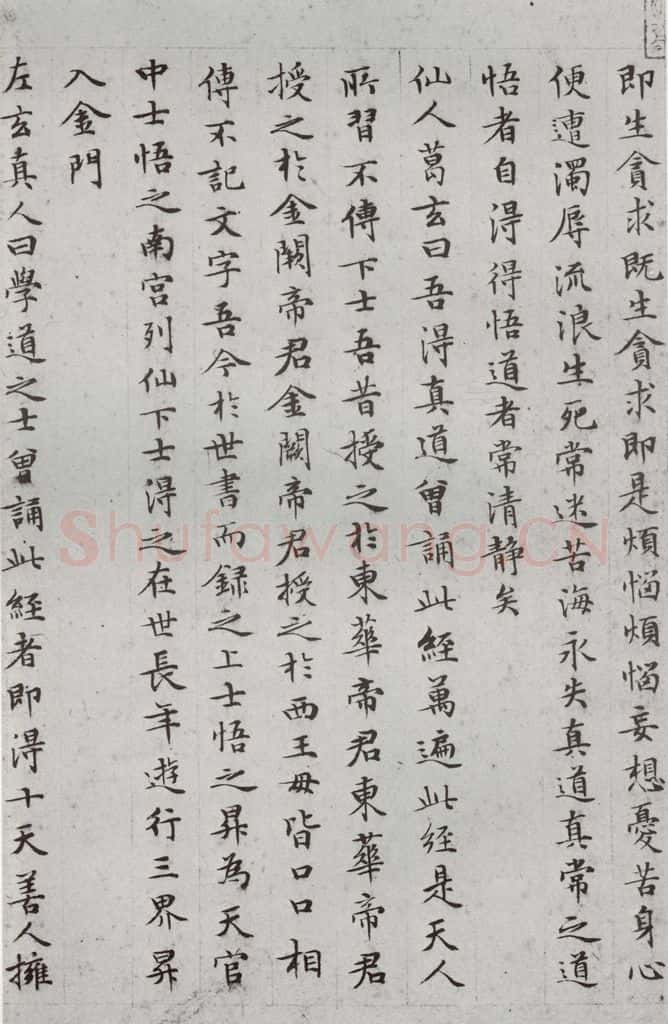 即生貪求既生貪求即是煩惱煩惱妄想憂苦身心
便遭濁辱流浪生死常迷苦海永失真道真常之道
悟者自得得悟道者常清静矣
仙人葛玄曰吾得真道曾誦此經萬遍此經是天人
所習不傳下士吾昔授之於東華帝君東華帝君
授之於金闕帝君金闕帝君授之於西王母皆口口相
傳不記文字吾今於世書而録之上士悟之昇為天官
中士悟之南宫列仙下士得之在世長年遊行三界昇
入金門
左玄真人曰學道之士曾誦此經者即得十天善人擁
Shufawang.CN